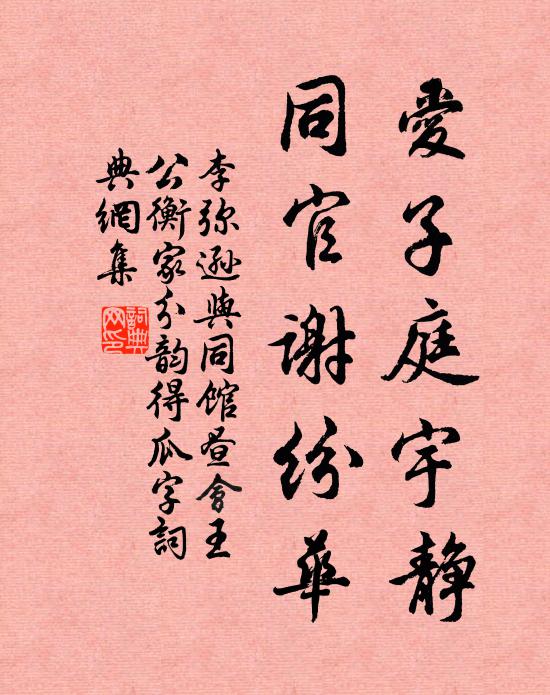 愛子庭宇靜
同官謝紛華
李弥遜與同館晝會王
公衡家分韵得瓜字詞
典網集
詞典网印